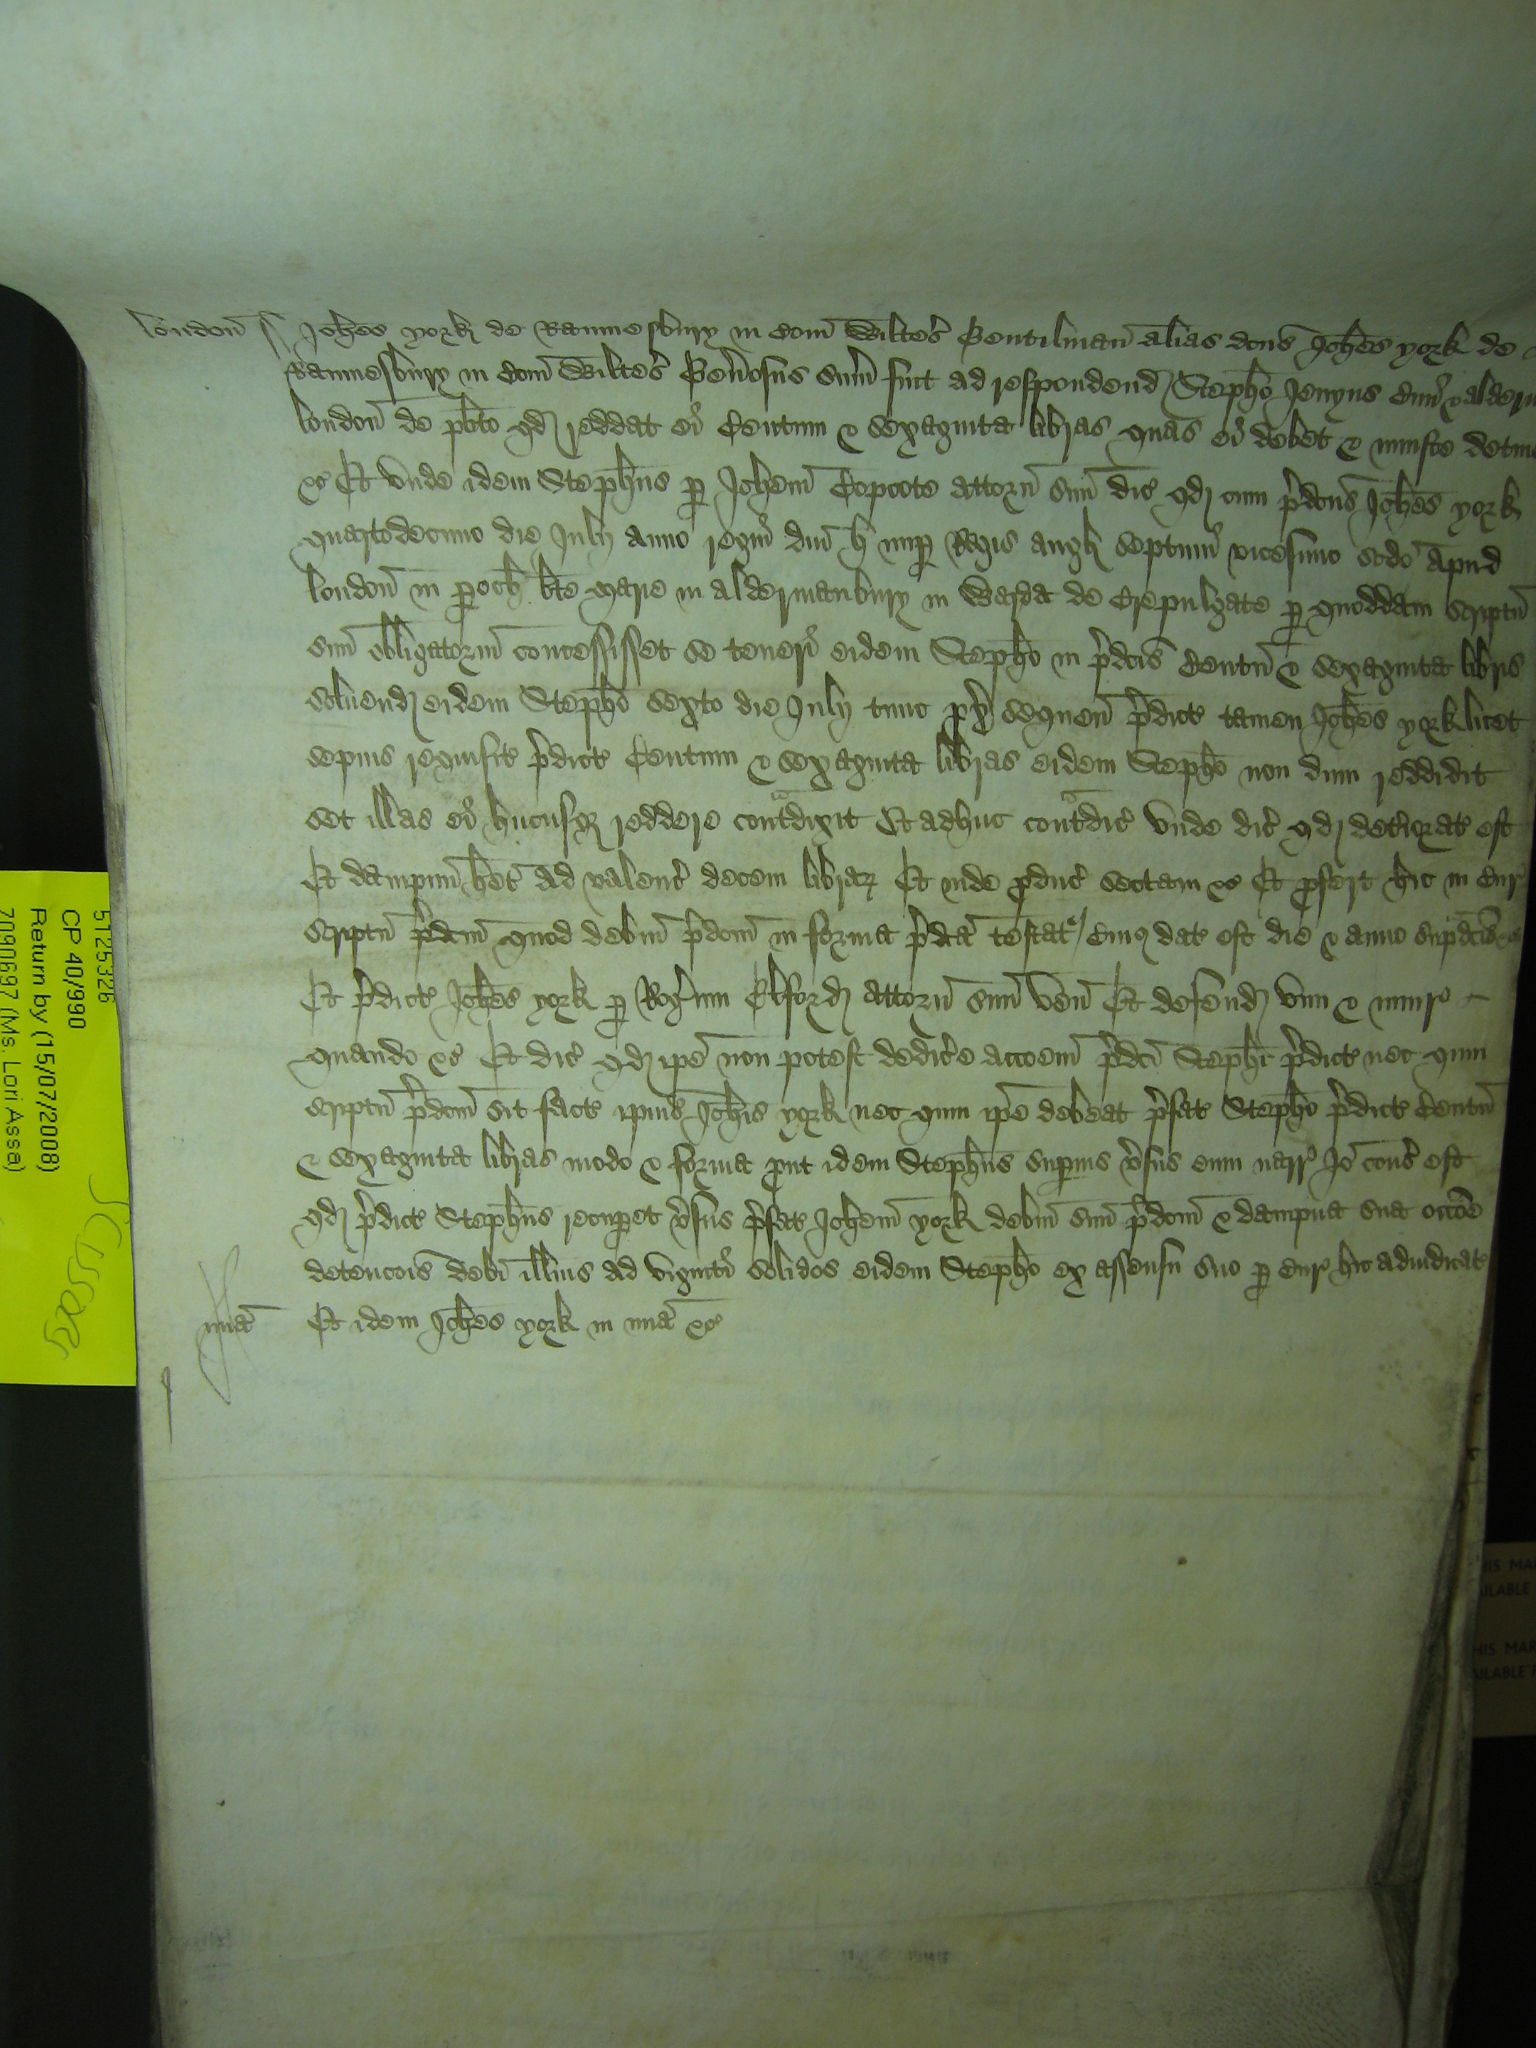 london̄ ss Joh̄es york de Rammesbury in Com̄ Wiltes' Gentilman alias dc̄us Joh̄es york de
Rammesbury in Com̄ Wiltes' Gen'osus sum̄ fuit ad respondend Steph̄o Jenyns Civi & aldermanno
london̄ de pl̄ito qd reddat ei Centum & sexaginta libras quas ei debet & iniuste detinet
&c Et unde idem Steph̄us p Joh̄em Copcote attorn̄ suū dic' qd cum p'dc̄us Joh̄es york
quartodecimo die Julij anno regni dn̄i H nup Regis angl septimi vicesimo sc̄do apud
london̄ in paroch be̅ marie in aldermanbury in Warda de Crepulgate p quoddam scriptū
suū obligatoriū concessisset se teneri eidem Steph̄o in p'dc̄is Centū & sexaginta libris
soluend eidem Steph̄o sexto die Julij tunc px̄ sequen̄ p'dict tamen Joh̄es york licet
sepius requisit p'dict Centum & sexaginta libras eidem Steph̄o non dum reddidit
set illas ei hucusq reddere cont'dixit Et adhuc cont'dic' Unde dic' qd det'iorat est
Et dampnū h̄et ad valenc' decem librar Et inde pduc' sectam &c Et pfert hic in Cur'
scriptū p'dc̄m quod debitū p'dc̄m in forma p'dc̄a testat' Cuius dat est die & anno sup̄dc̄is &c
Et p'dict Joh̄es york p Rog'um Elford attorn̄ suū ven̄ Et defend vim & iniur'
quando &c Et dic' qd ip̄e non potest dedic'e acc̄oem p'dc̄i Steph̄i p'dict nec quin
scriptū p'dc̄m sit fact ip̄ius Joh̄is york nec quin ip̄e debeat p'fat Steph̄o p'dict Centū
& sexaginta libras modo & forma put idem Steph̄us superius v'sus eum narr' Io cons' est
qd p'dict Steph̄us recupet v'sus p'fat Joh̄em york debitū suū p'dc̄m & dampna sua occ̄one
detenc̄ois debi illius ad viginti solidos eidem Steph̄o ex assensu suo p Cur' hic adiudicat
mīa Et idem Joh̄es york in mīa &c
5125326
CP 40/990
Return by (15/07/2008)
7090697 (Ms. Lori Assa)
HIS MA
AILABLE
HIS MAR
AILABLE